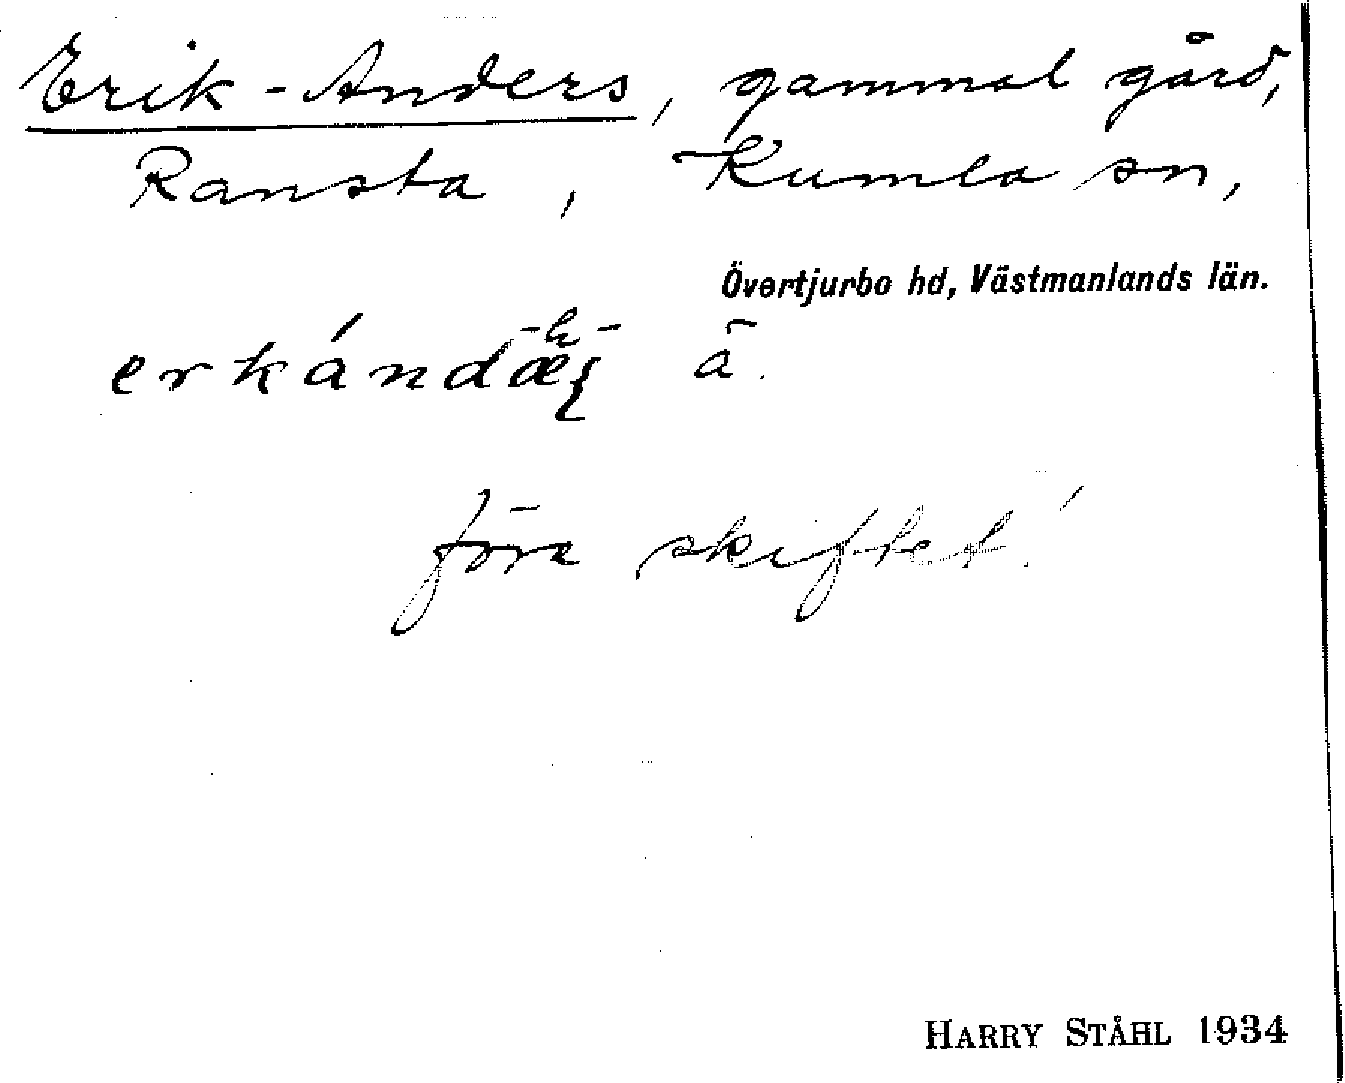 Erik-Anders, gammal gård,
Ransta, Kumla sn,
Övertjurbo hd, Västmanlands län.
före skiftet.
HARRY STÅHL 1934